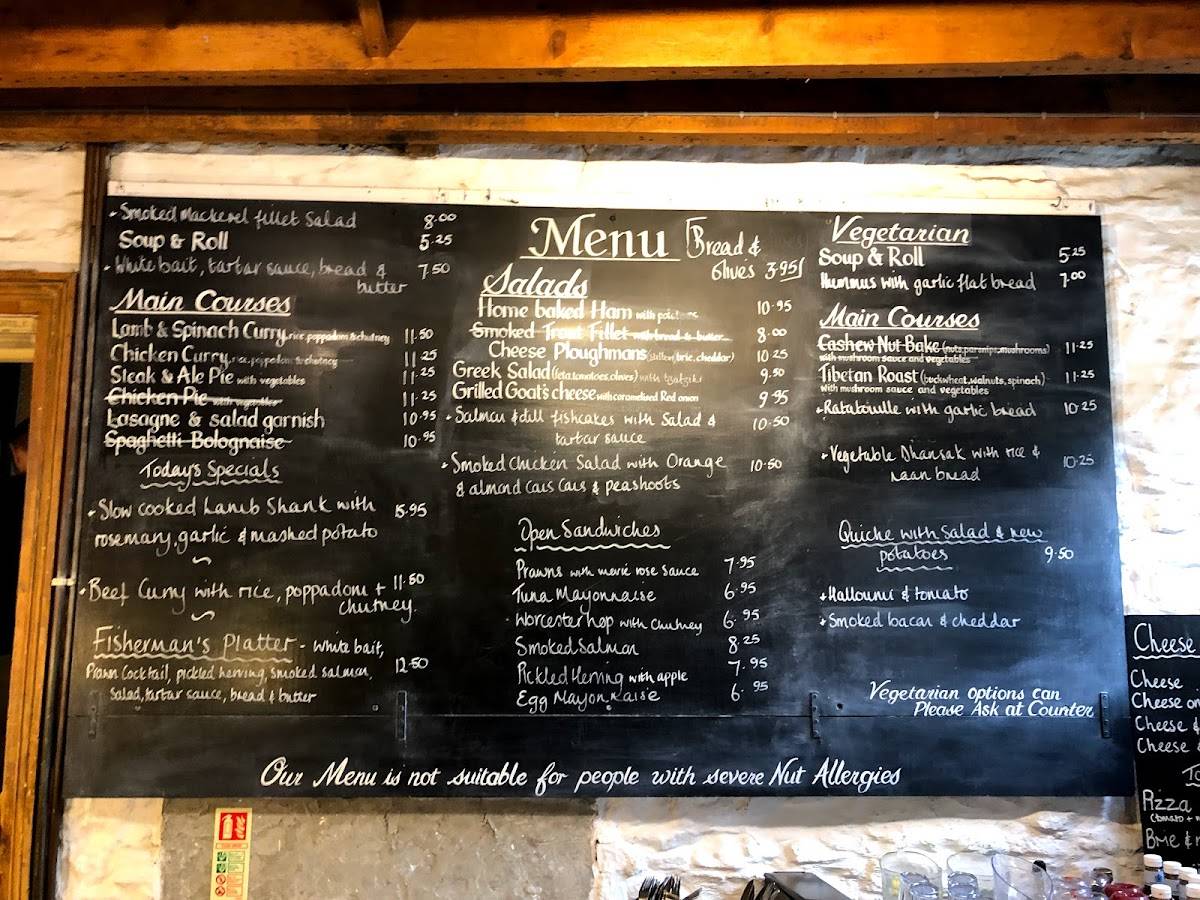 Smoked Mackerel fillet Salad 8.00
Soup & Roll 5.25
White bait, tartar sauce, bread & butter 7.50
Main Courses
Lamb & Spinach Curry, rice, poppadom & chutney 11.50
Chicken Curry, rice, poppadom & chutney 11.25
Steak & Ale Pie with vegetables 11.25
Chicken Pie with vegetables 11.25
Lasagne & salad garnish 10.95
Spaghetti Bolognaise 10.95
Today's Specials
Slow cooked Lamb Shank with 15.95
rosemary, garlic & mashed potato
Beef Curry with rice, poppadom + 11.50
chutney.
Fisherman's Platter - white bait,
Prawn Cocktail, pickled herring, smoked salmon, 12.50
salad, tartar sauce, bread & butter
Menu
Bread &
Olives 3.95
Salads
Home baked Ham with potatoes 10.95
Smoked Trout Fillet with bread & butter 8.00
Cheese Ploughmans (stilton, brie, cheddar) 10.25
Greek Salad (feta, tomatoes, olives) with tzatziki 9.50
Grilled Goat's cheese with caramelised Red onion 9.95
Salmon & dill fishcakes with Salad & 10.50
tartar sauce
Smoked Chicken Salad with Orange 10.50
& almond Cous Cous & peashoots
Open Sandwiches
Prawns with marie rose sauce 7.95
Tuna Mayonnaise 6.95
Worcester hop with Chutney 6.95
Smoked Salmon 8.25
Pickled Herring with apple 7.95
Egg Mayonnaise 6.95
Vegetarian
Soup & Roll 5.25
Hummus with garlic flat bread 7.00
Main Courses
Cashew Nut Bake (nuts, parsnips, mushrooms) 11.25
with mushroom sauce and vegetables
Tibetan Roast (buckwheat, walnuts, spinach) 11.25
with mushroom sauce and vegetables
Ratatouille with garlic bread 10.25
Vegetable Dhansak with rice & 10.25
naan bread
Quiche with Salad & new
potatoes 9.50
Halloumi & tomato
Smoked bacon & cheddar
Vegetarian options can
Please Ask at Counter
Our Menu is not suitable for people with severe Nut Allergies
Cheese
Cheese
Cheese
Cheese &
Cheese
Pizza
Brie &